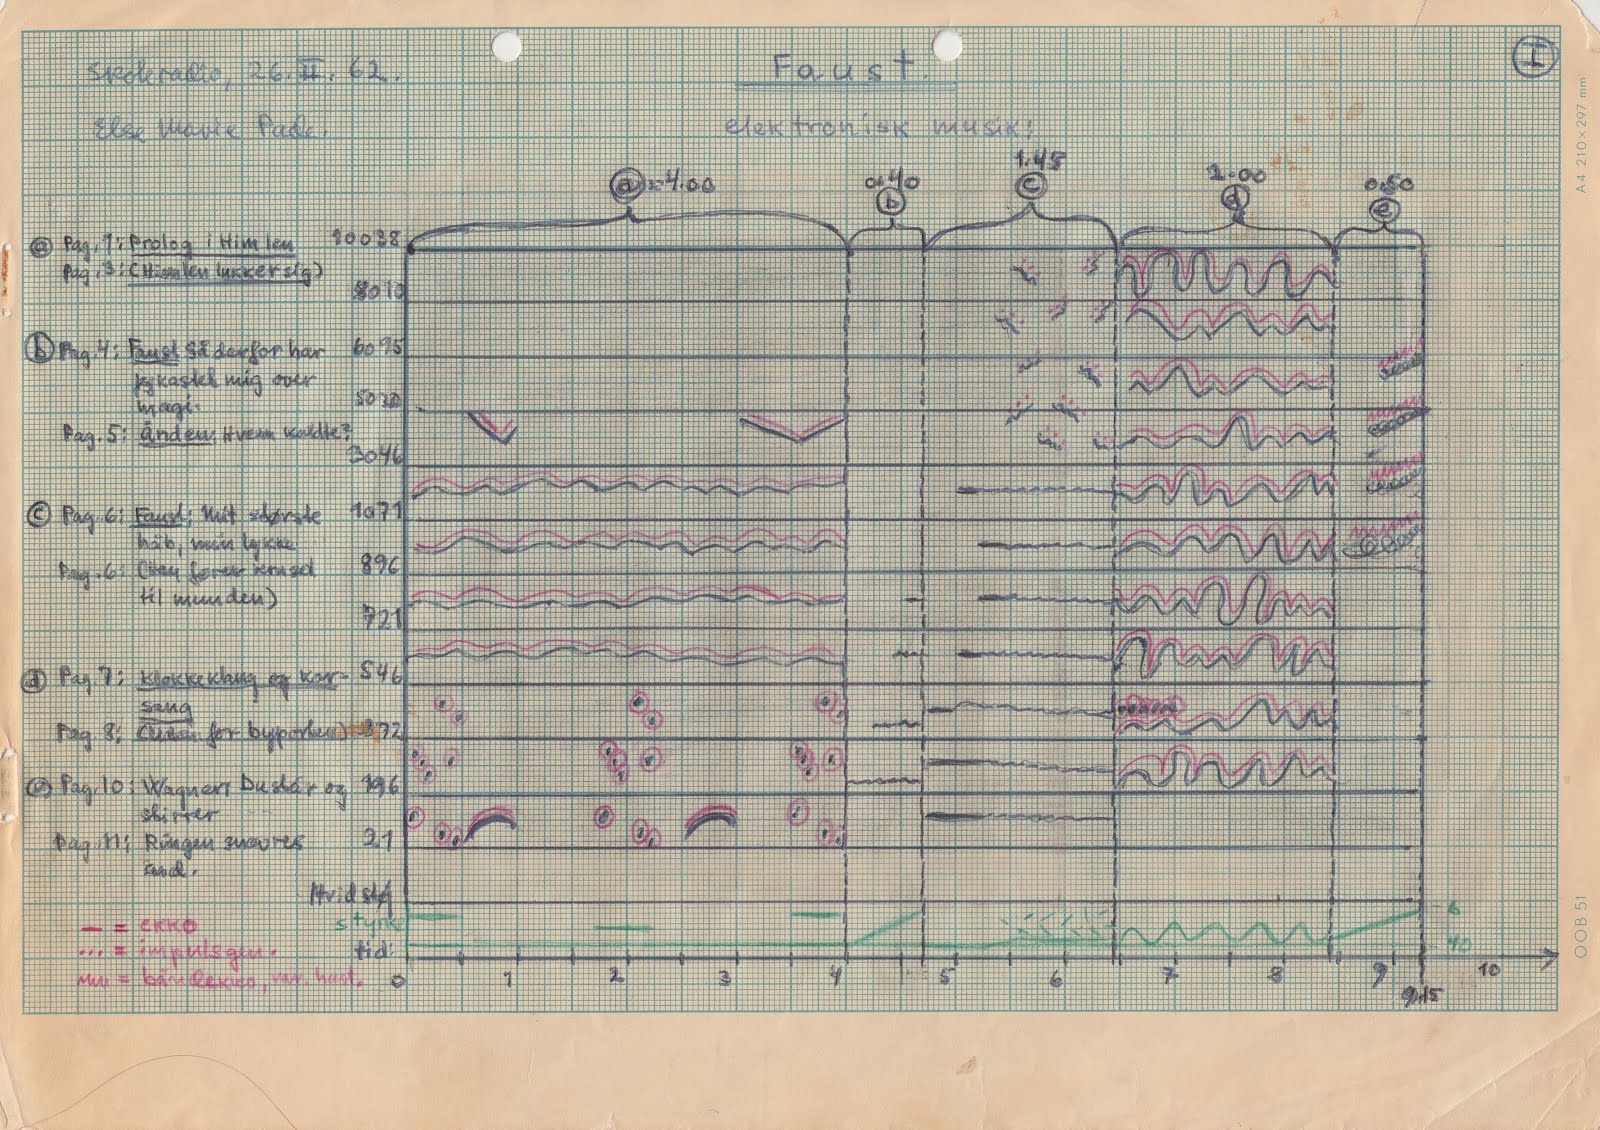 26. II. 62.
Faust.
I
Else Marie Pade.
elektronisk musik:
ⓐ = 4.00
0.40
ⓑ
1.45
ⓒ
2.00
ⓓ
0.50
ⓔ
ⓐ Pag. 1: Prolog i Himlen
Pag. 3: (Himlen lukker sig)
ⓑ Pag. 4: Faust Så derfor har
mig over
magi.
Pag. 5: Ånden: Hvem kaldte?
ⓒ Pag. 6: Faust: mit største
håb, min lykke
Pag. 6: (Han fører
til munden)
ⓓ Pag. 7: Klokkeklang og kor-
sang
Pag. 8: for byporten)
ⓔ Pag. 10: Wagner: Du står og
stirrer
Pag. 11: Ringen snævres
ind.
10038
8010
6095
5020
3046
1071
896
721
546
372
196
21
Hvid støj
styrke
tid:
— = ekko
... = impulsgen.
= båndekko, var. hast.
-6
-40
0 1 2 3 4 5 6 7 8 9 10
9.15
A4 210 × 297 mm
OOB 51